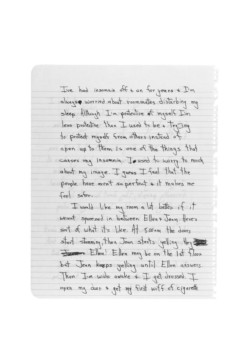 I've had insomnia off & on for years & I'm
always worried about somebody disturbing my
sleep. Although I'm protective of myself I'm
less protective than I used to be & trying
to protect myself from others instead of
open up to them is one of the things that
causes my insomnia. I used to worry so much
about my image. I guess I feel that the
people here aren't important & it makes me
feel
I would like my room a lot better if it
wasn't in between Ellen & Jean
out of what it's like. At 8:00am the doors
start slamming, then Jean starts yelling "Hey
Ellen! Ellen! Ellen may be on the 1st floor
but Jean keeps yelling until Ellen answers.
Then I'm wide awake & I get dressed I
open my door & get my first whiff of cigarette